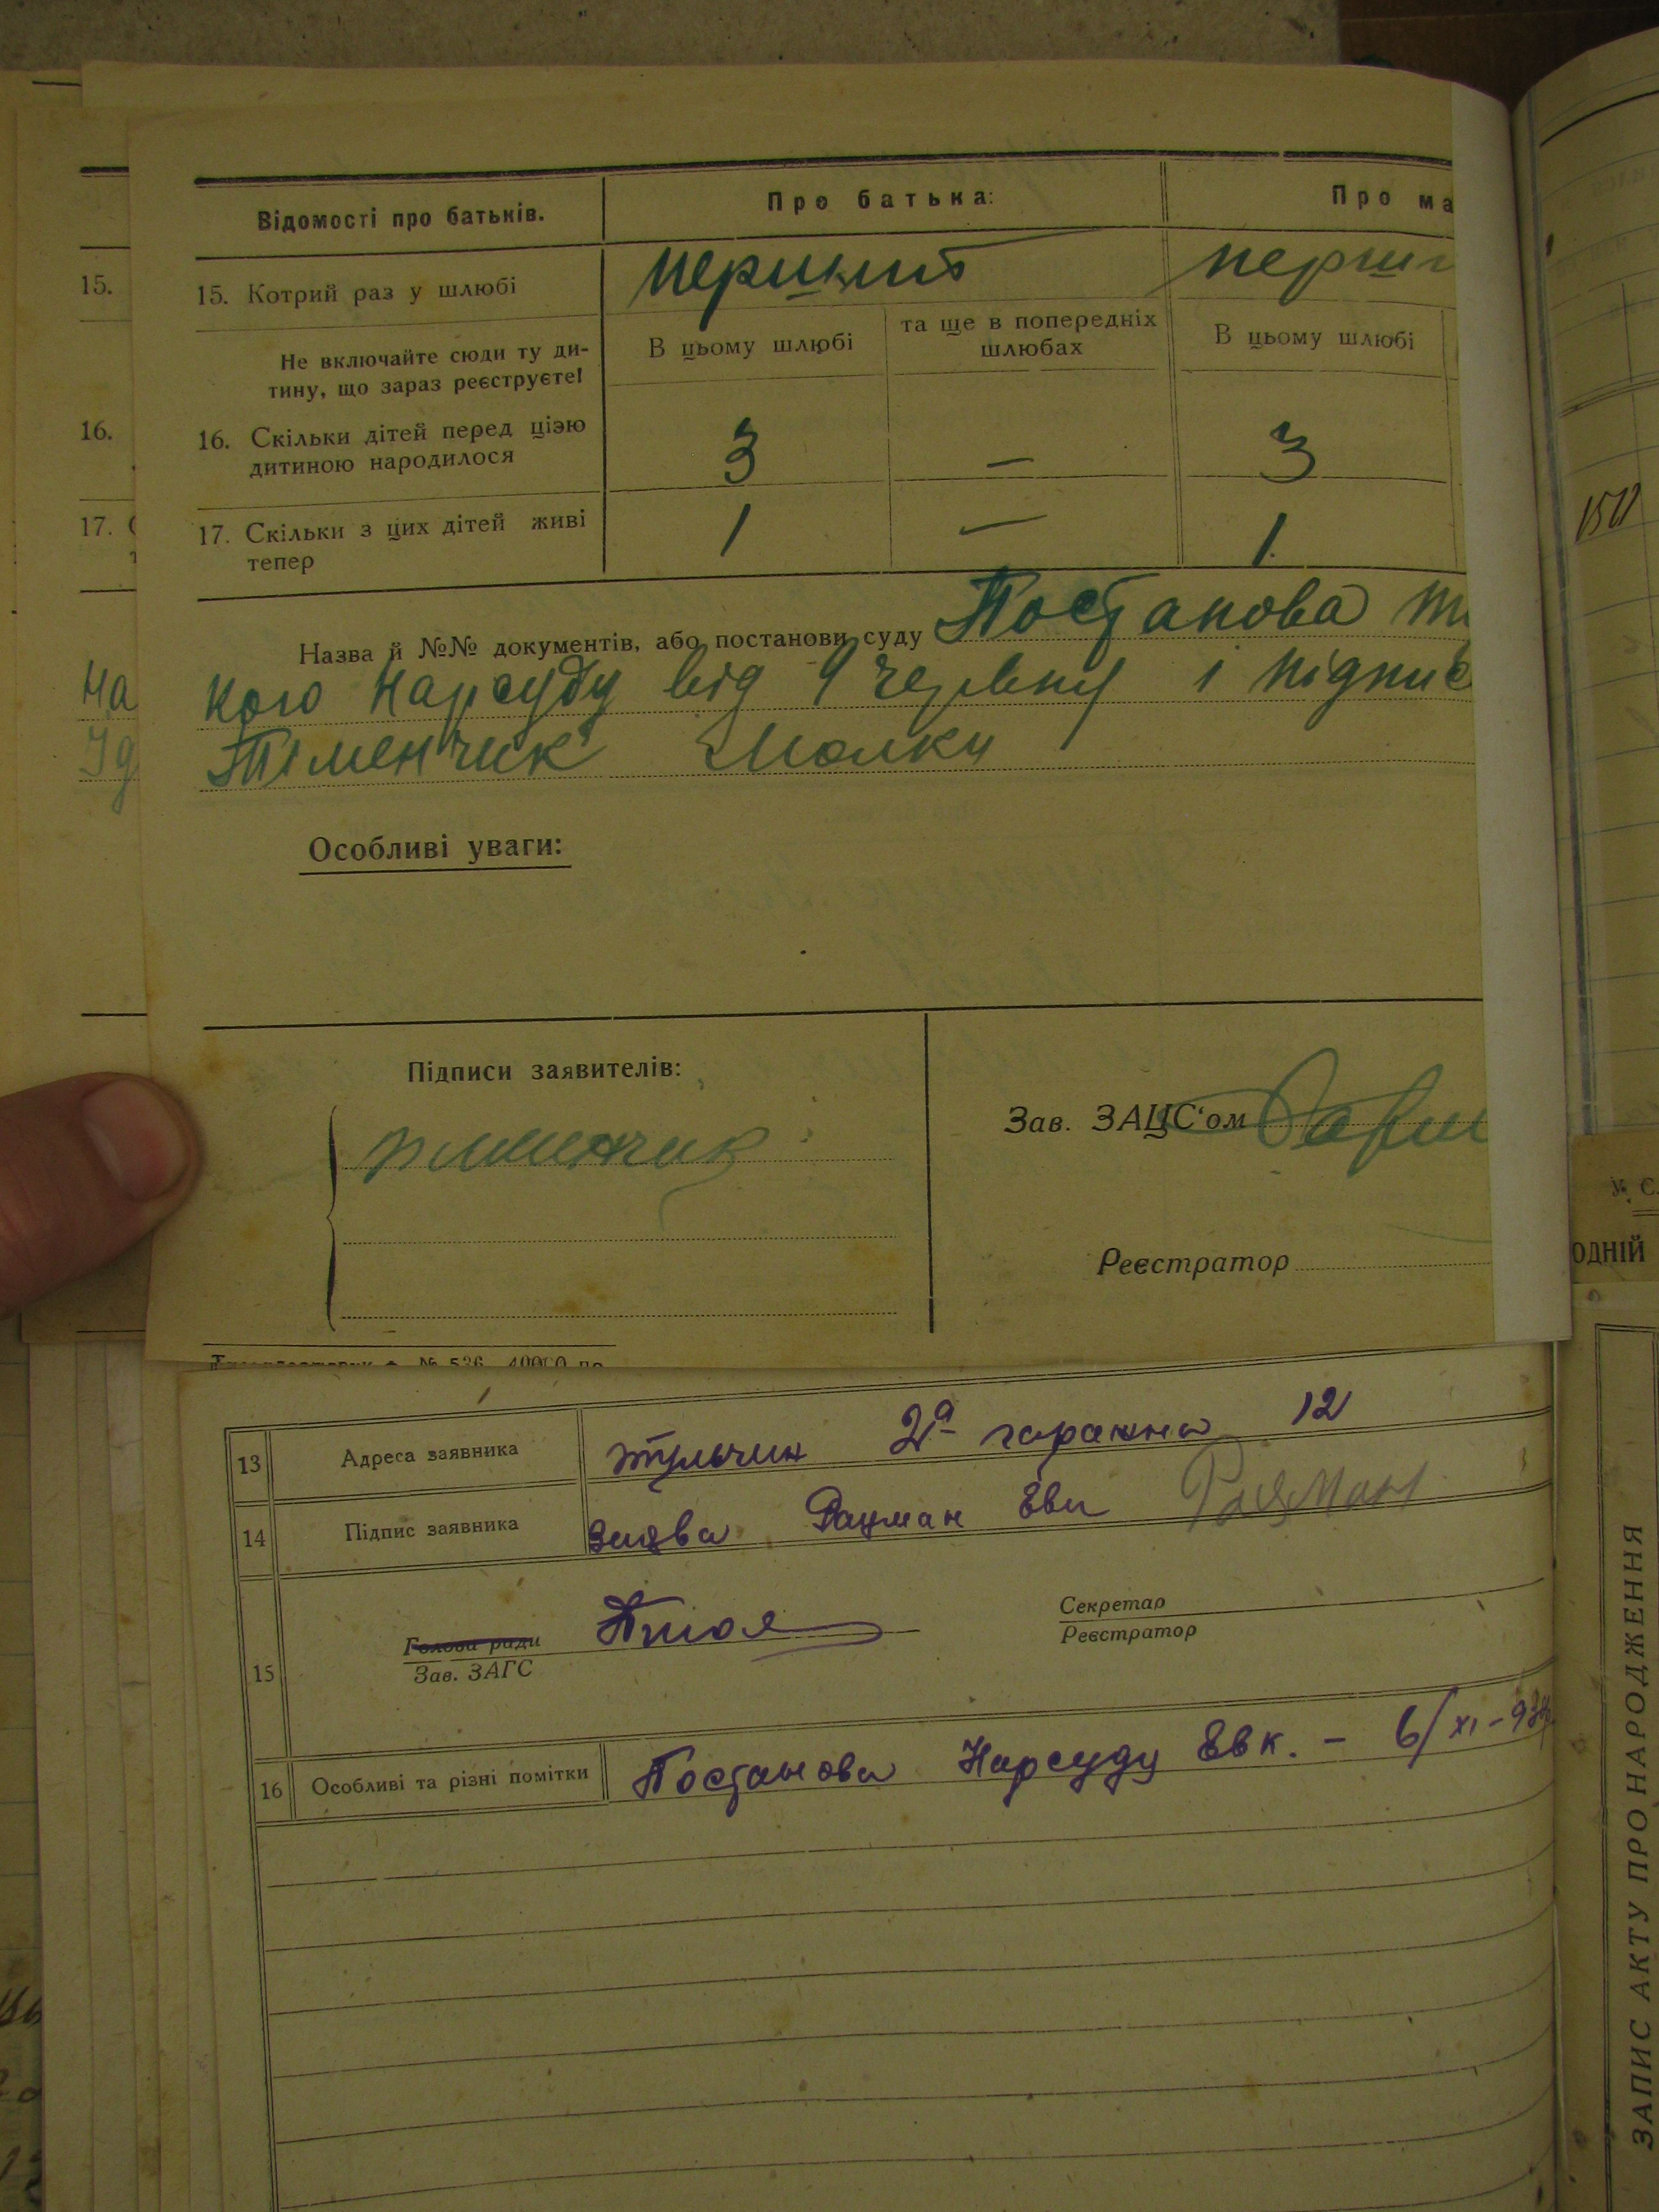 Відомості про батьків.
Про батька:
Про ма
15.
15. Котрий раз у шлюбі
перший
перши
Не включайте сюди ту ди-
тину, що зараз реєструєте!
В цьому шлюбі
та ще в попередніх
шлюбах
В цьому шлюбі
16.
16. Скільки дітей перед цією
дитиною народилося
3
—
3
17.
17. Скільки з цих дітей живі
тепер
1
—
1
Назва й №№ документів, або постанови суду Постанова
кого Нарсуду від 9 червня і підпис
Тіменчик Малки
На
Особливі уваги:
Підписи заявителів:
Зав. ЗАЦС‘ом
Реєстратор
№ 536
13 Адреса заявника
Тульчин 2а гаражна 12
14 Підпис заявника
Заява Рацман Еви
15
Голова ради
Зав. ЗАГС
Секретар
Реєстратор
16 Особливі та різні помітки
Постанова Нарсуду Евк. – 6/XI–93
одній
ЗАПИС АКТУ ПРО НАРОДЖЕННЯ